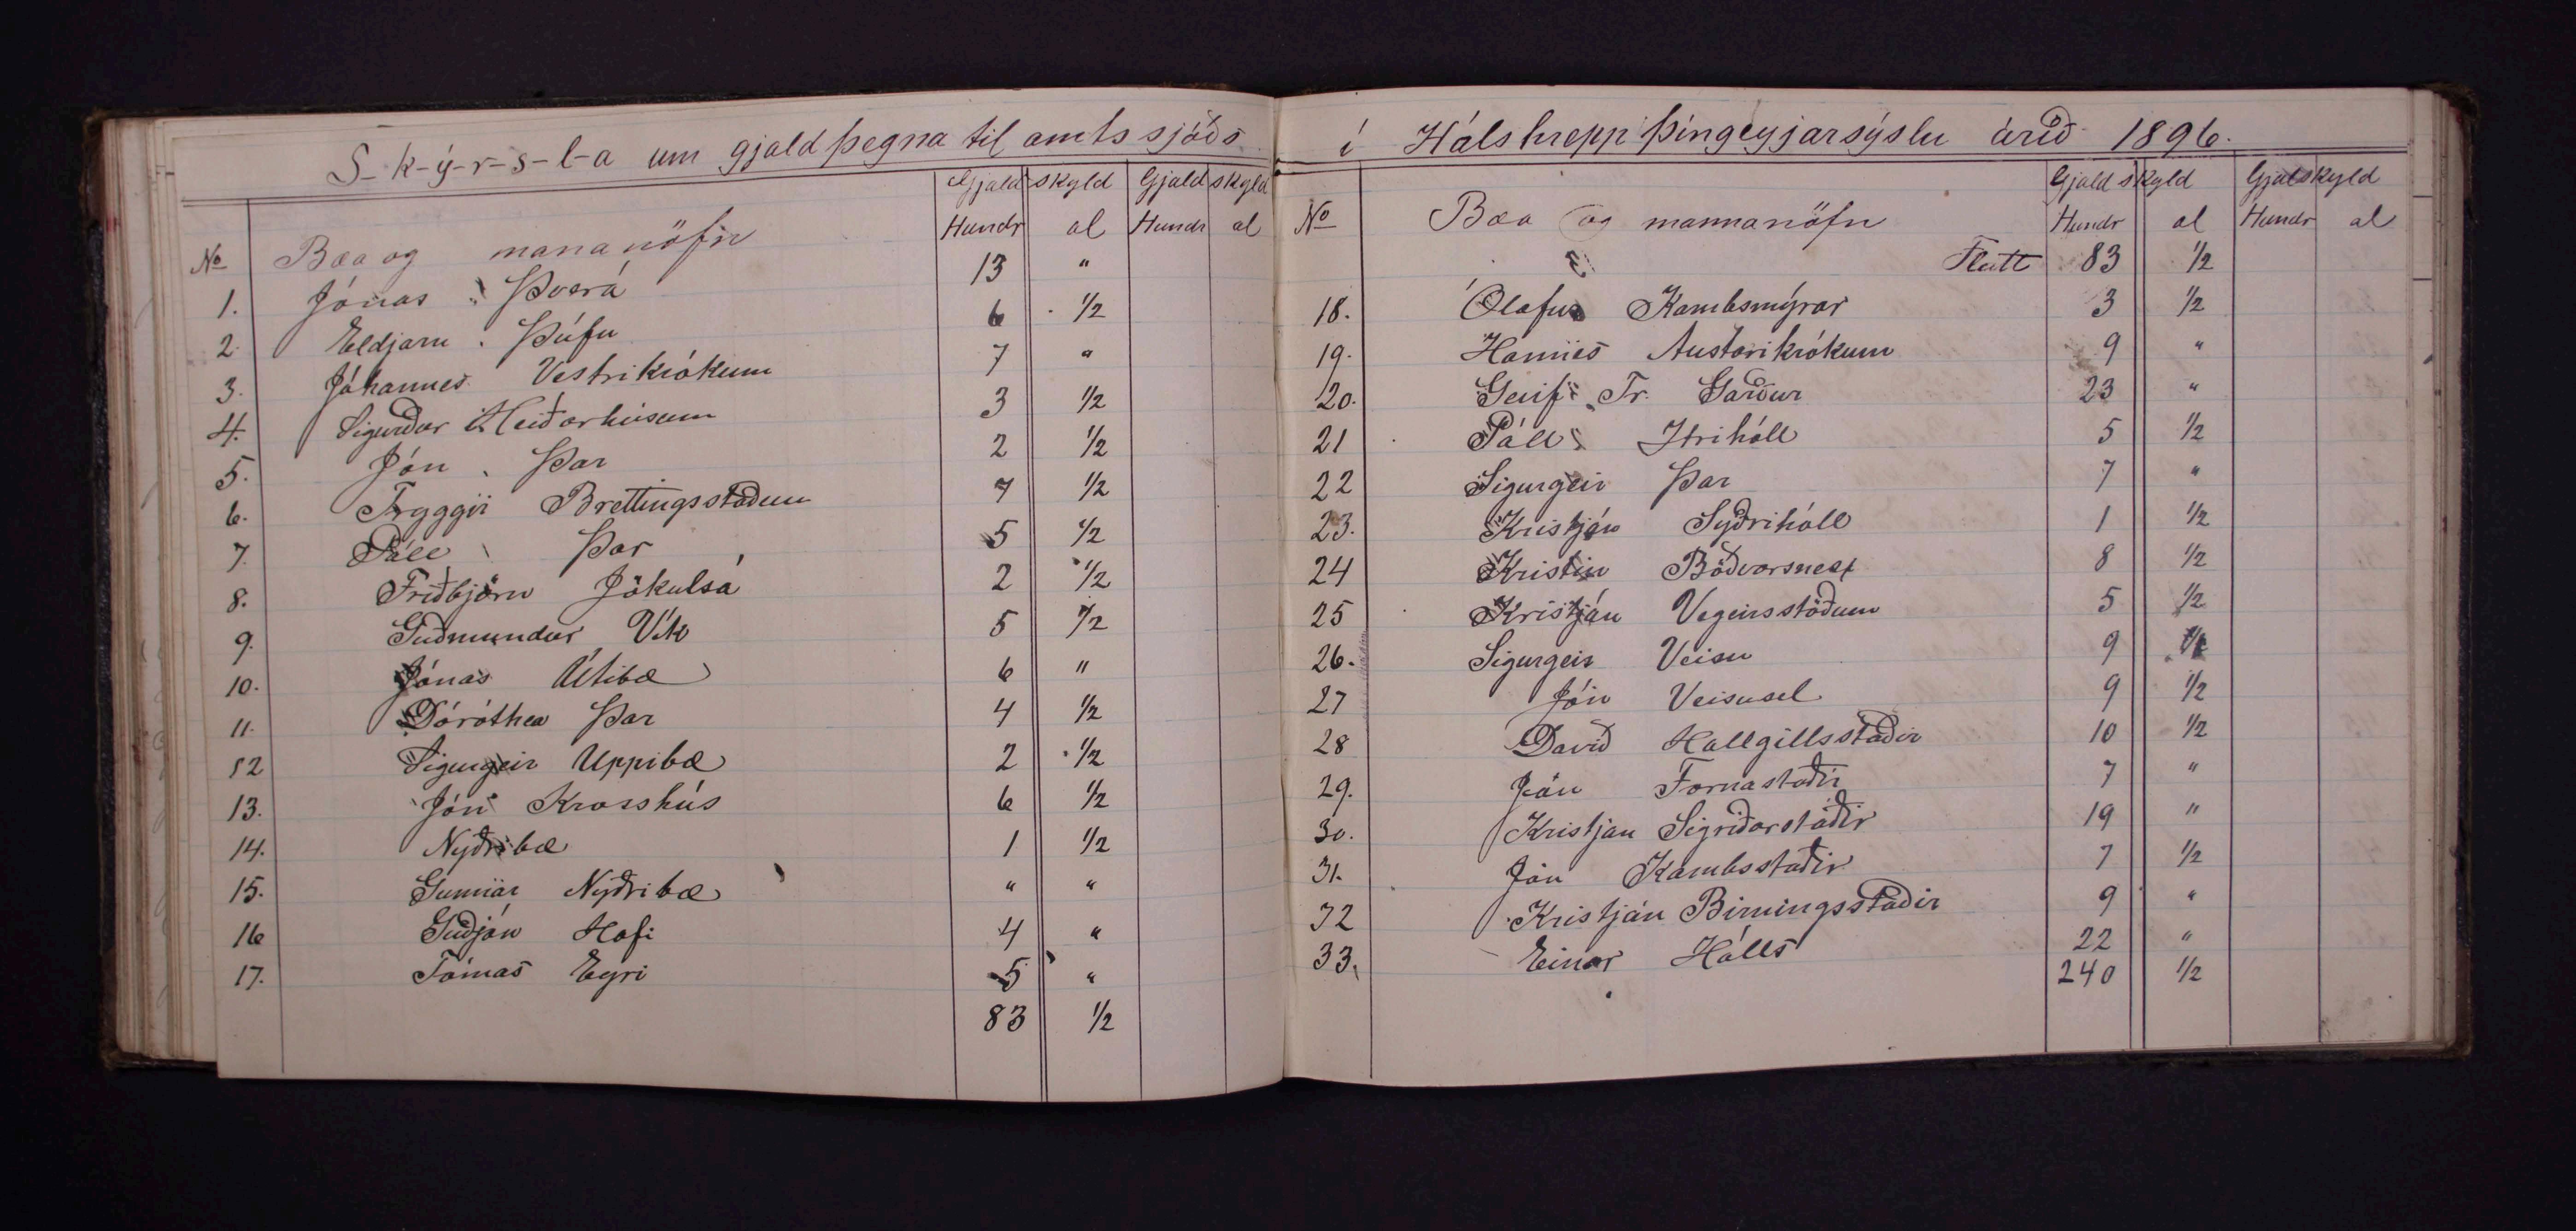 S-k-ý-r-s-l-a um gjaldþegna til amtssjóðs
Gjaldskyld Gjaldskyld
No Bæa og mana nöfn Hundr al Hundr al
1. Jónas Þverá 13 "
2. Eldjarn Þúfu 6 1/2
3. Jóhannes Vestrikrókum 7 "
4. Sigurður Heiðarhúsum 3 1/2
5. Jón Þar 2 1/2
6. Tryggvi Brettingsstöðum 7 1/2
7. Páll Þar 5 1/2
8. Friðbjörn Jökulsá 2 1/2
9. Guðmundur Vík 5 1/2
10. Jónas Útibæ 6 "
11. Dóróthea Þar 4 1/2
12 Sigurgeir Uppibæ 2 1/2
13. Jón Krosshús 6 1/2
14. Nyðribæ 1 1/2
15. Gunnar Nyðribæ " "
16 Guðjón Hofi 4 "
17. Tómas Eyri 5 "
83 1/2
í Hálshrepp Þingeyjarsýslu árið 1896.
Gjaldskyld Gjalskyld
No Bæa og mannanöfn Hundr al Hundr al
Flutt 83 1/2
18. Ólafur Kambsmýrar 3 1/2
19. Hannes Austarikrókum 9 "
20. Tr. Garður 23 "
21 Páll Itrihóll 5 1/2
22 Sigurgeir Þar 7 "
23. Kristján Syðrihóll 1 1/2
24 Kristin Böðvarsnes 8 1/2
25 Kristján Vegeirsstöðum 5 1/2
26. Sigurgeir Veisu 9
27 Jón Veisusel 9 1/2
28 Davið Hallgillsstaðir 10 1/2
29. Jón Fornastaðir 7 "
30. Kristjan Sigriðarstaðir 19 "
31. Jón Kambsstaðir 7 1/2
32 Kristján Birningsstaðir 9 "
33. Einar Hálls 22 "
240 1/2